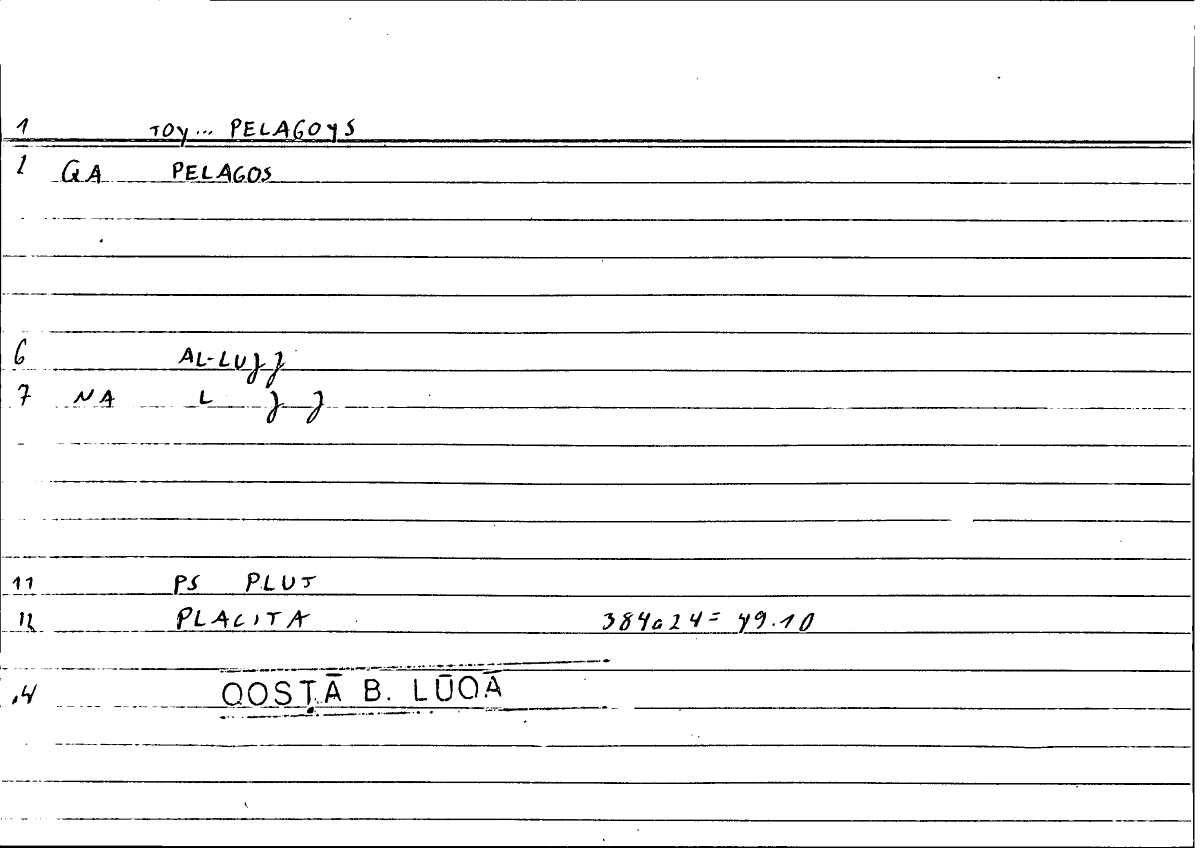 1 TOY... PELAGOYS
2 GA PELAGOS
6 AL-LUJJ
7 NA L J J
11 PS PLUT
12 PLACITA 384a24= 49.10
14 QOSṬĀ B. LŪQĀ